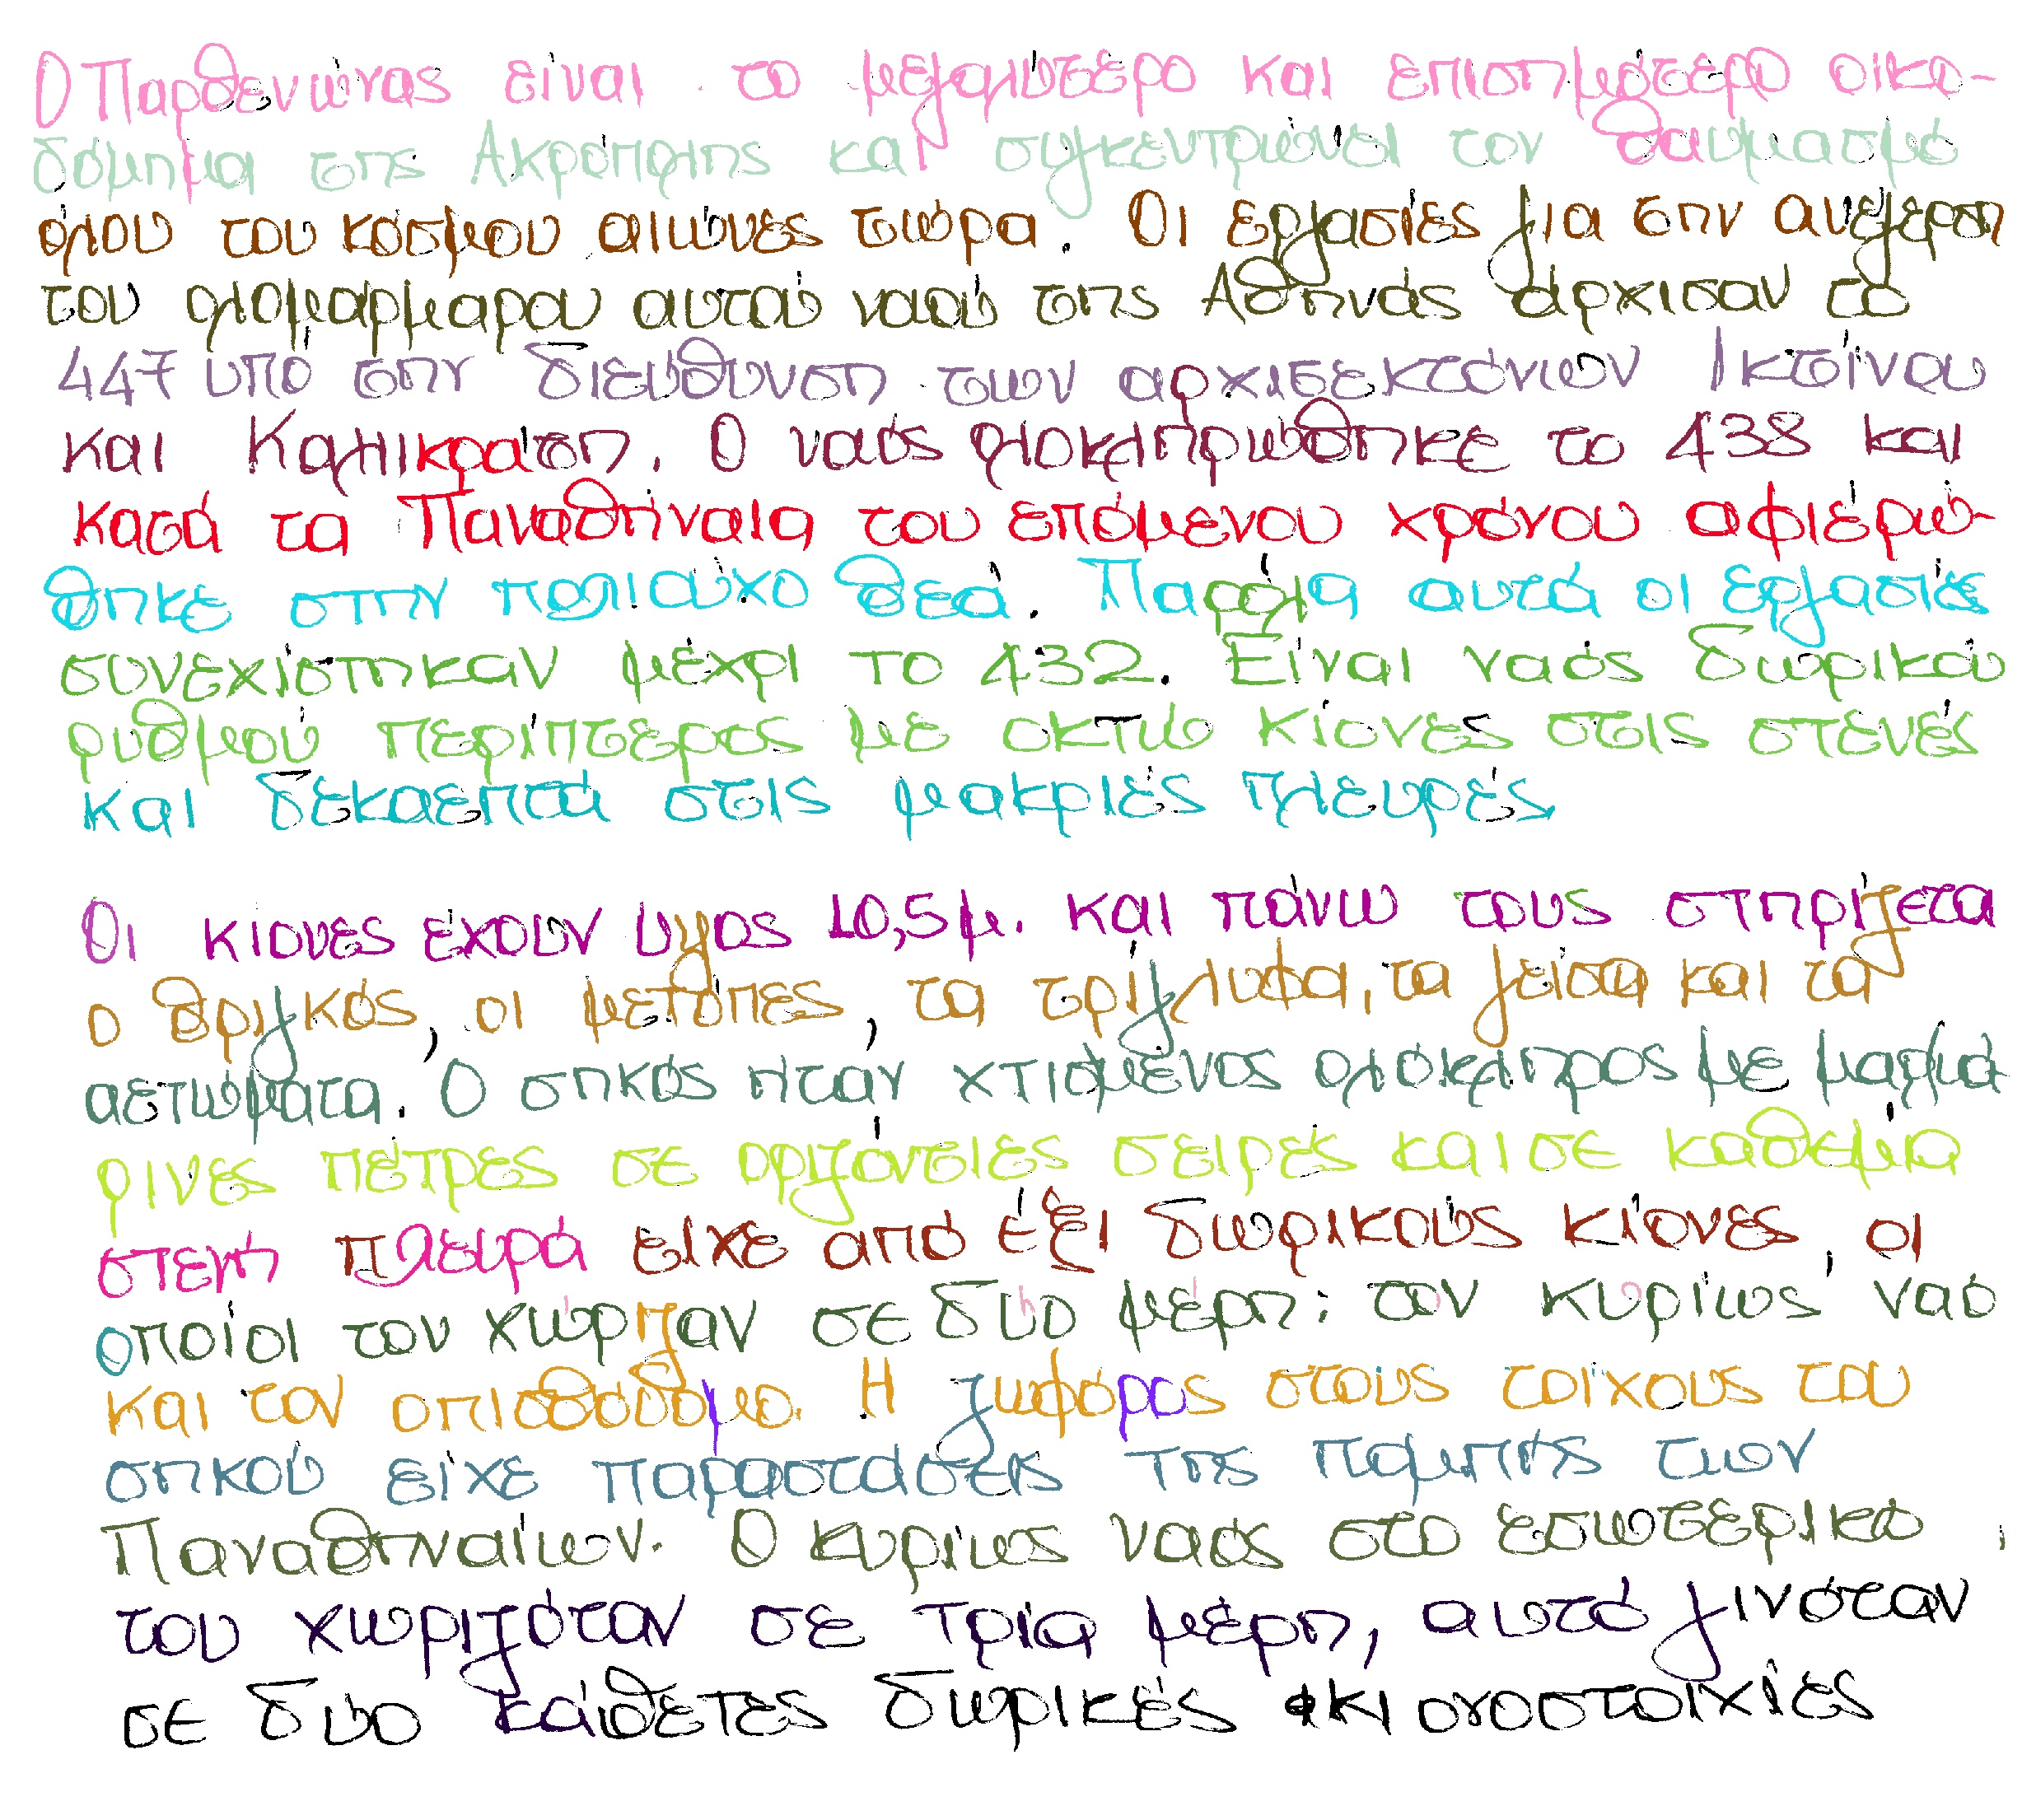 Ο Παρθενώνας είναι το μεγαλύτερο και επισημότερο οικο-
δόμημα της Ακρόπολης και συγκεντρώνει τον θαυμασμό
όλου του κόσμου αιώνες τώρα. Οι εργασίες για την ανέγερση
του ολομάρμαρου αυτού ναού της Αθηνάς άρχισαν το
447 υπό την διεύθυνση των αρχιτεκτόνων Ικτίνου
και Καλλικράτη. Ο ναός ολοκληρώθηκε το 438 και
κατά τα Παναθήναια του επόμενου χρόνου αφιερώ-
θηκε στην πολιούχο θεά. Παρόλα αυτά οι εργασίες
συνεχίστηκαν μέχρι το 432. Είναι ναός δωρικού
ρυθμού περίπτερος με οκτώ κίονες στις στενές
και δεκαεπτά στις μακριές πλευρές.
Οι κίονες έχουν ύψος 10,5 μ. και πάνω τους στηρίζετα
ο θριγκός, οι μετόπες, τα τρίγλυφα, τα γείσα και τα
αετώματα. Ο σηκός ήταν χτισμένος ολόκληρος με μαρμά
ρινες πέτρες σε οριζόντιες σειρές και σε καθεμία
στενή πλευρά είχε από έξι δωρικούς κίονες, οι
οποίοι τον χώριζαν σε δύο μέρη: τον κυρίως ναό
και τον οπισθόδομο. Η ζωφόρος στους τοίχους του
σηκού είχε παραστάσεις της πομπής των
Παναθηναίων. Ο κυρίως ναός στο εσωτερικό
του χωριζόταν σε τρία μέρη, αυτό γινόταν
σε δύο κάθετες δωρικές κιονοστοιχίες